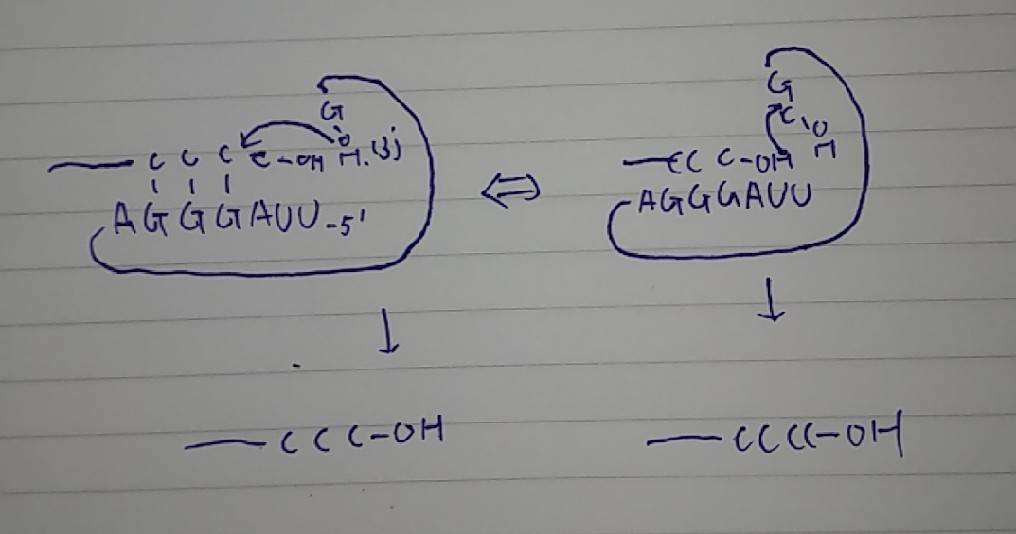 G
C C C C-OH H.(3')
AGGGAUU-5'
G
C O
CC C-OH H
AGGGAUU
CCC-OH
CCCC-OH